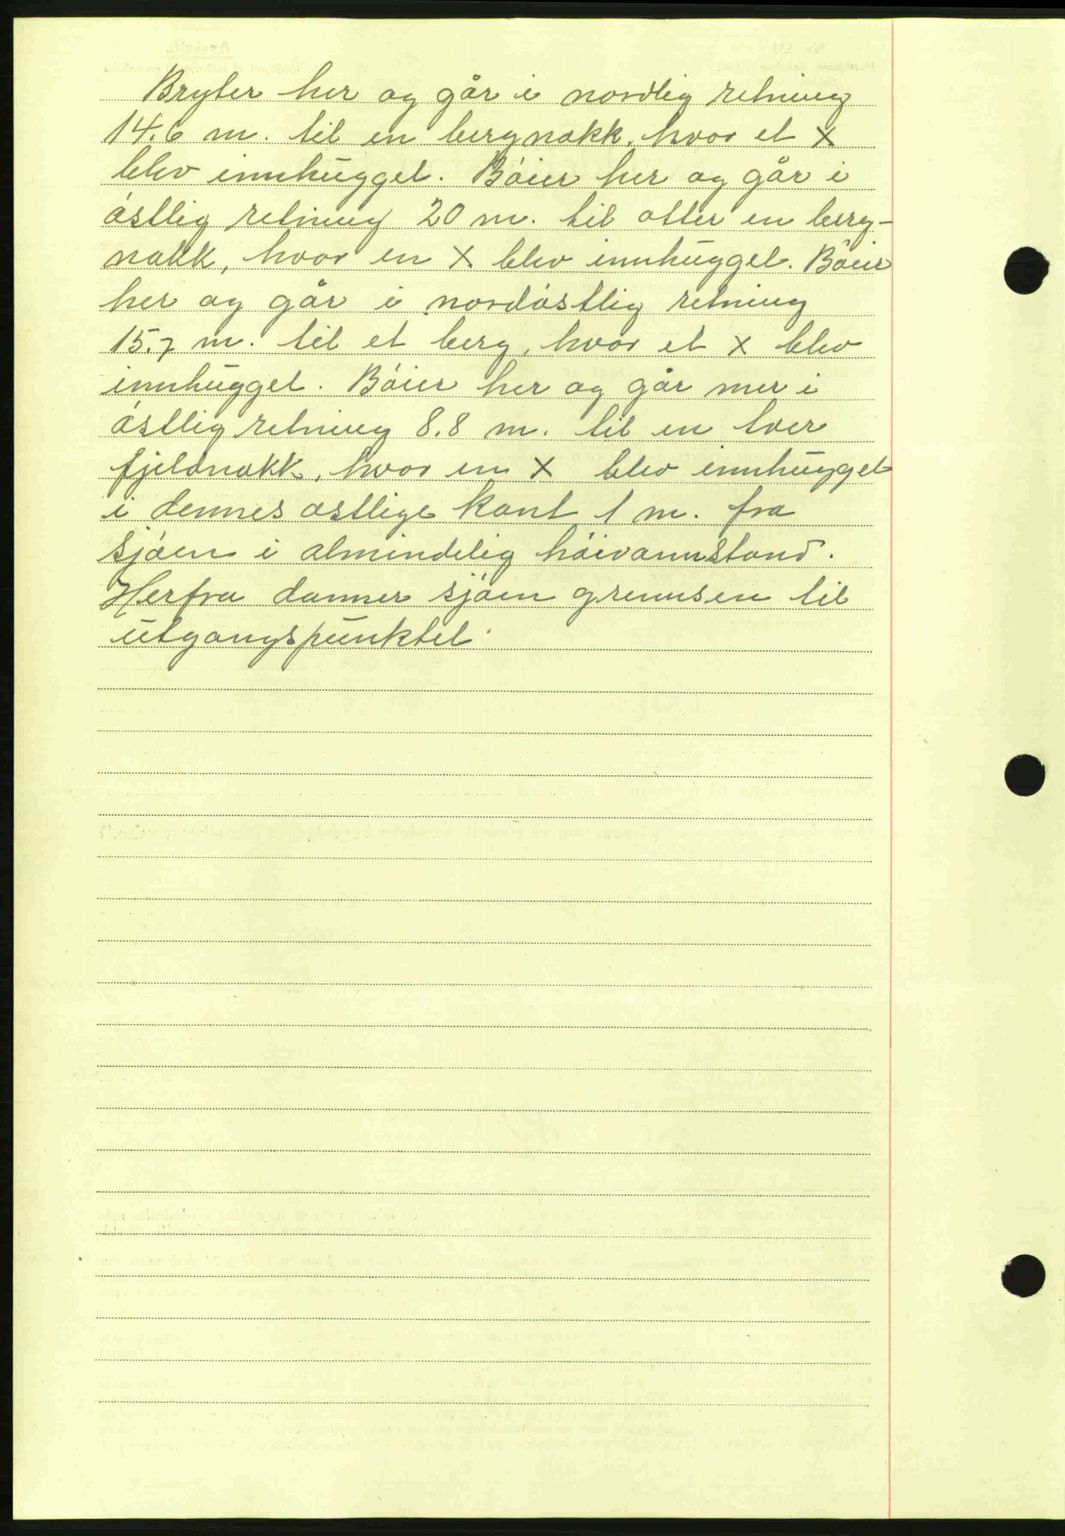 Bryter her og går i nordlig retning
14.6 m. til en bergnakk, hvor et X
blev innhugget. Bøier her og går i
østlig retning 20 m. til atter en berg-
nakk, hvor en X blev innhugget. Bøier
her og går i nordøstlig retning
15.7 m. til et berg, hvor et X blev
innhugget. Bøier her og går mer i
østlig retning 8.8 m. til en tver
fjeldnakk, hvor en X blev innhugget
i dennes østlige kant 1 m. fra
sjøen i almindelig høivannstand.
Herfra danner sjøen grensen til
utgangspunktet.